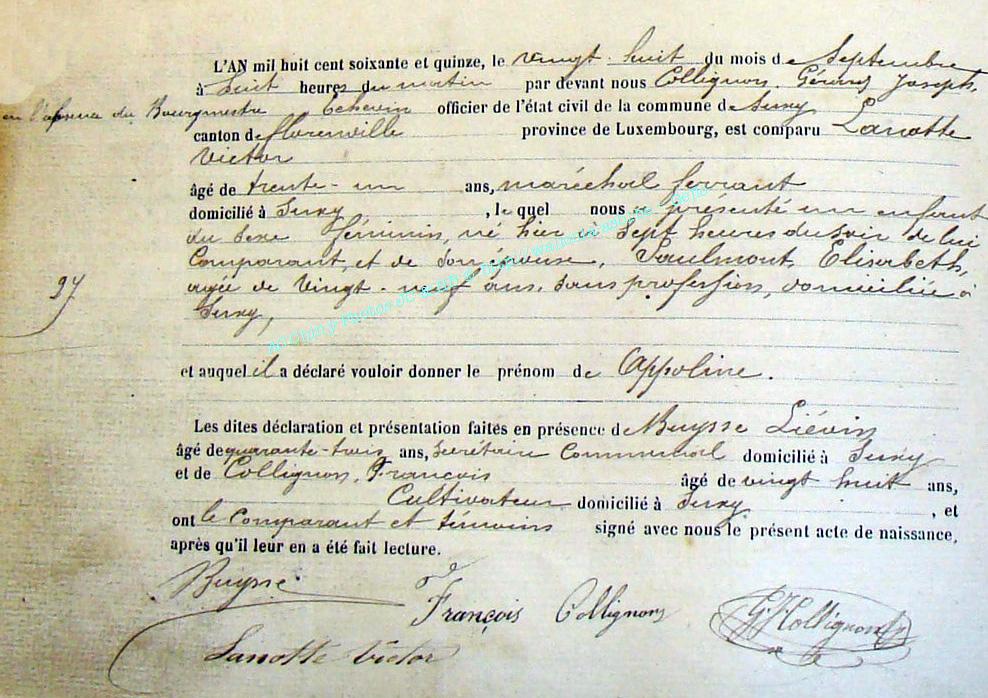 L'AN mil huit cent soixante et quinze, le vingt-huit du mois de Septembre
à huit heures du matin par devant nous Collignon, Gérard Joseph,
en l'absence du Bourgmestre, échevin officier de l'état civil de la commune de Suxy
canton de florenville province de Luxembourg, est comparu Lanotte
Victor
âgé de trente-un ans, maréchal ferrant
domicilié à Suxy, lequel nous a présenté un enfant
du sexe féminin, né hier à Sept heures du soir de lui
Comparant, et de son épouse, Saulmont, Elisabeth,
agée de vingt-neuf ans, sans profession, domiciliée à
Suxy,
27
et auquel il a déclaré vouloir donner le prénom de Appoline.
Les dites déclaration et présentation faites en présence de Buysse Liévin
âgé de quarante-trois ans, Secrétaire Communal domicilié à Suxy
et de Collignon, François âgé de vingt huit ans,
Cultivateur domicilié à Suxy, et
ont le Comparant et témoins signé avec nous le présent acte de naissance,
après qu'il leur en a été fait lecture.
Buysse
François Collignon
G J Collignon
Lanotte Victor